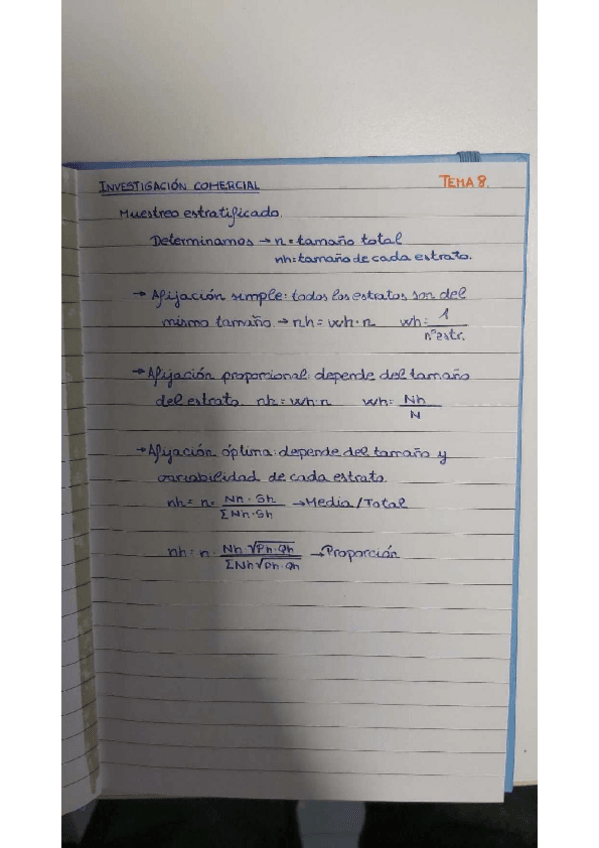 INVESTIGACIÓN COMERCIAL TEMA 8.
Muestreo estratificado.
Determinamos → n = tamaño total
nh = tamaño de cada estrato.
→ Afijación simple: todos los estratos son del
mismo tamaño → nh = wh · n wh = 1 / nº estr.
→ Afijación proporcional: depende del tamaño
del estrato. nh = wh · n wh = Nh / N
→ Afijación óptima: depende del tamaño y
variabilidad de cada estrato.
nh = n · Nh · Sh / ΣNh · Sh → Media / Total
nh = n · Nh √Ph · Qh / ΣNh √Ph · Qh → Proporción